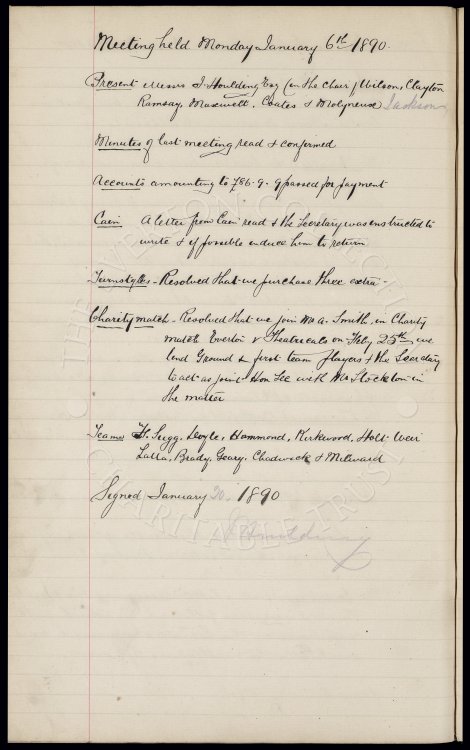 Meeting held Monday January 6th 1890.
Present Messrs J. Houlding Esq (in the chair) Wilson, Clayton
Ramsay, Maxwell, Coates & Molyneux Jackson
Minutes of last meeting read & confirmed
Accounts amounting to £86.9.9 passed for payment
Cain A letter from Cain read & the Secretary was instructed to
write & if possible induce him to return
Turnstyles - Resolved that we purchase three extra -
Charity match - Resolved that we join Mr A. Smith, in Charity
match Everton v Theatricals on Feby 25th, we
lend Ground & first team players & the Secretary
to act as joint Hon Sec with Mr Stockton in
the matter
Teams F. Sugg, Doyle, Hammond, Kirkwood, Holt Weir
Latta, Brady, Geary, Chadwick & Milward
Signed January 20. 1890
J Houlding
THE EVERTON COLLECTION
CHARITABLE TRUST